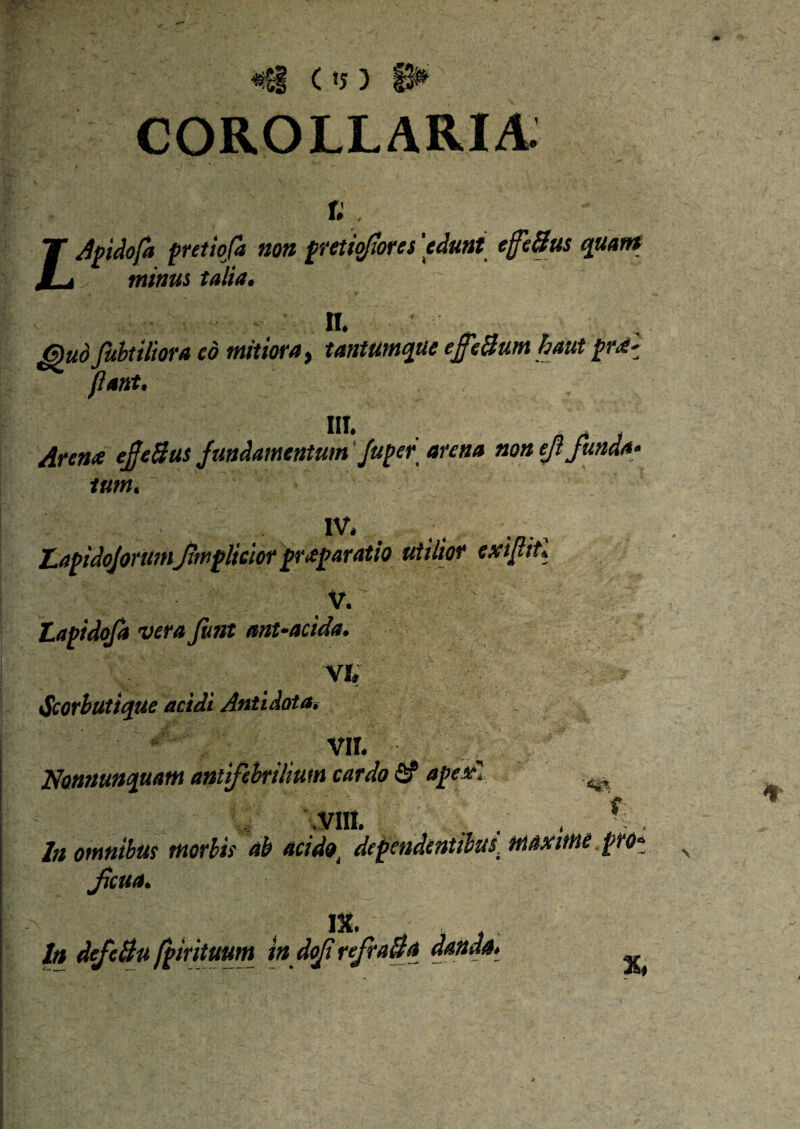 (15)
COROLLARIA.
I.
LApidoſa pretioſa non pretioſiores edunt effectus quam
minus talia.
II.
Quò ſubtiliora eò mitiora, tantumque effectum haut præ-
ſtant.
III.
Arenæ effectus fundamentum ſuper arena non eſt funda-
tum.
IV.
Lapidoſorum ſimplicior præparatio utilior exiſtit.
V.
Lapidoſa vera ſunt ant-acida.
VI.
Scorbutique acidi Antidota.
VII.
Nonnunquam antifebrilium cardo & apex.
VIII.
In omnibus morbis ab acido dependentibus maxime pro-
ficua.
IX.
In defectu ſpirituum in doſi refracta danda.
X.